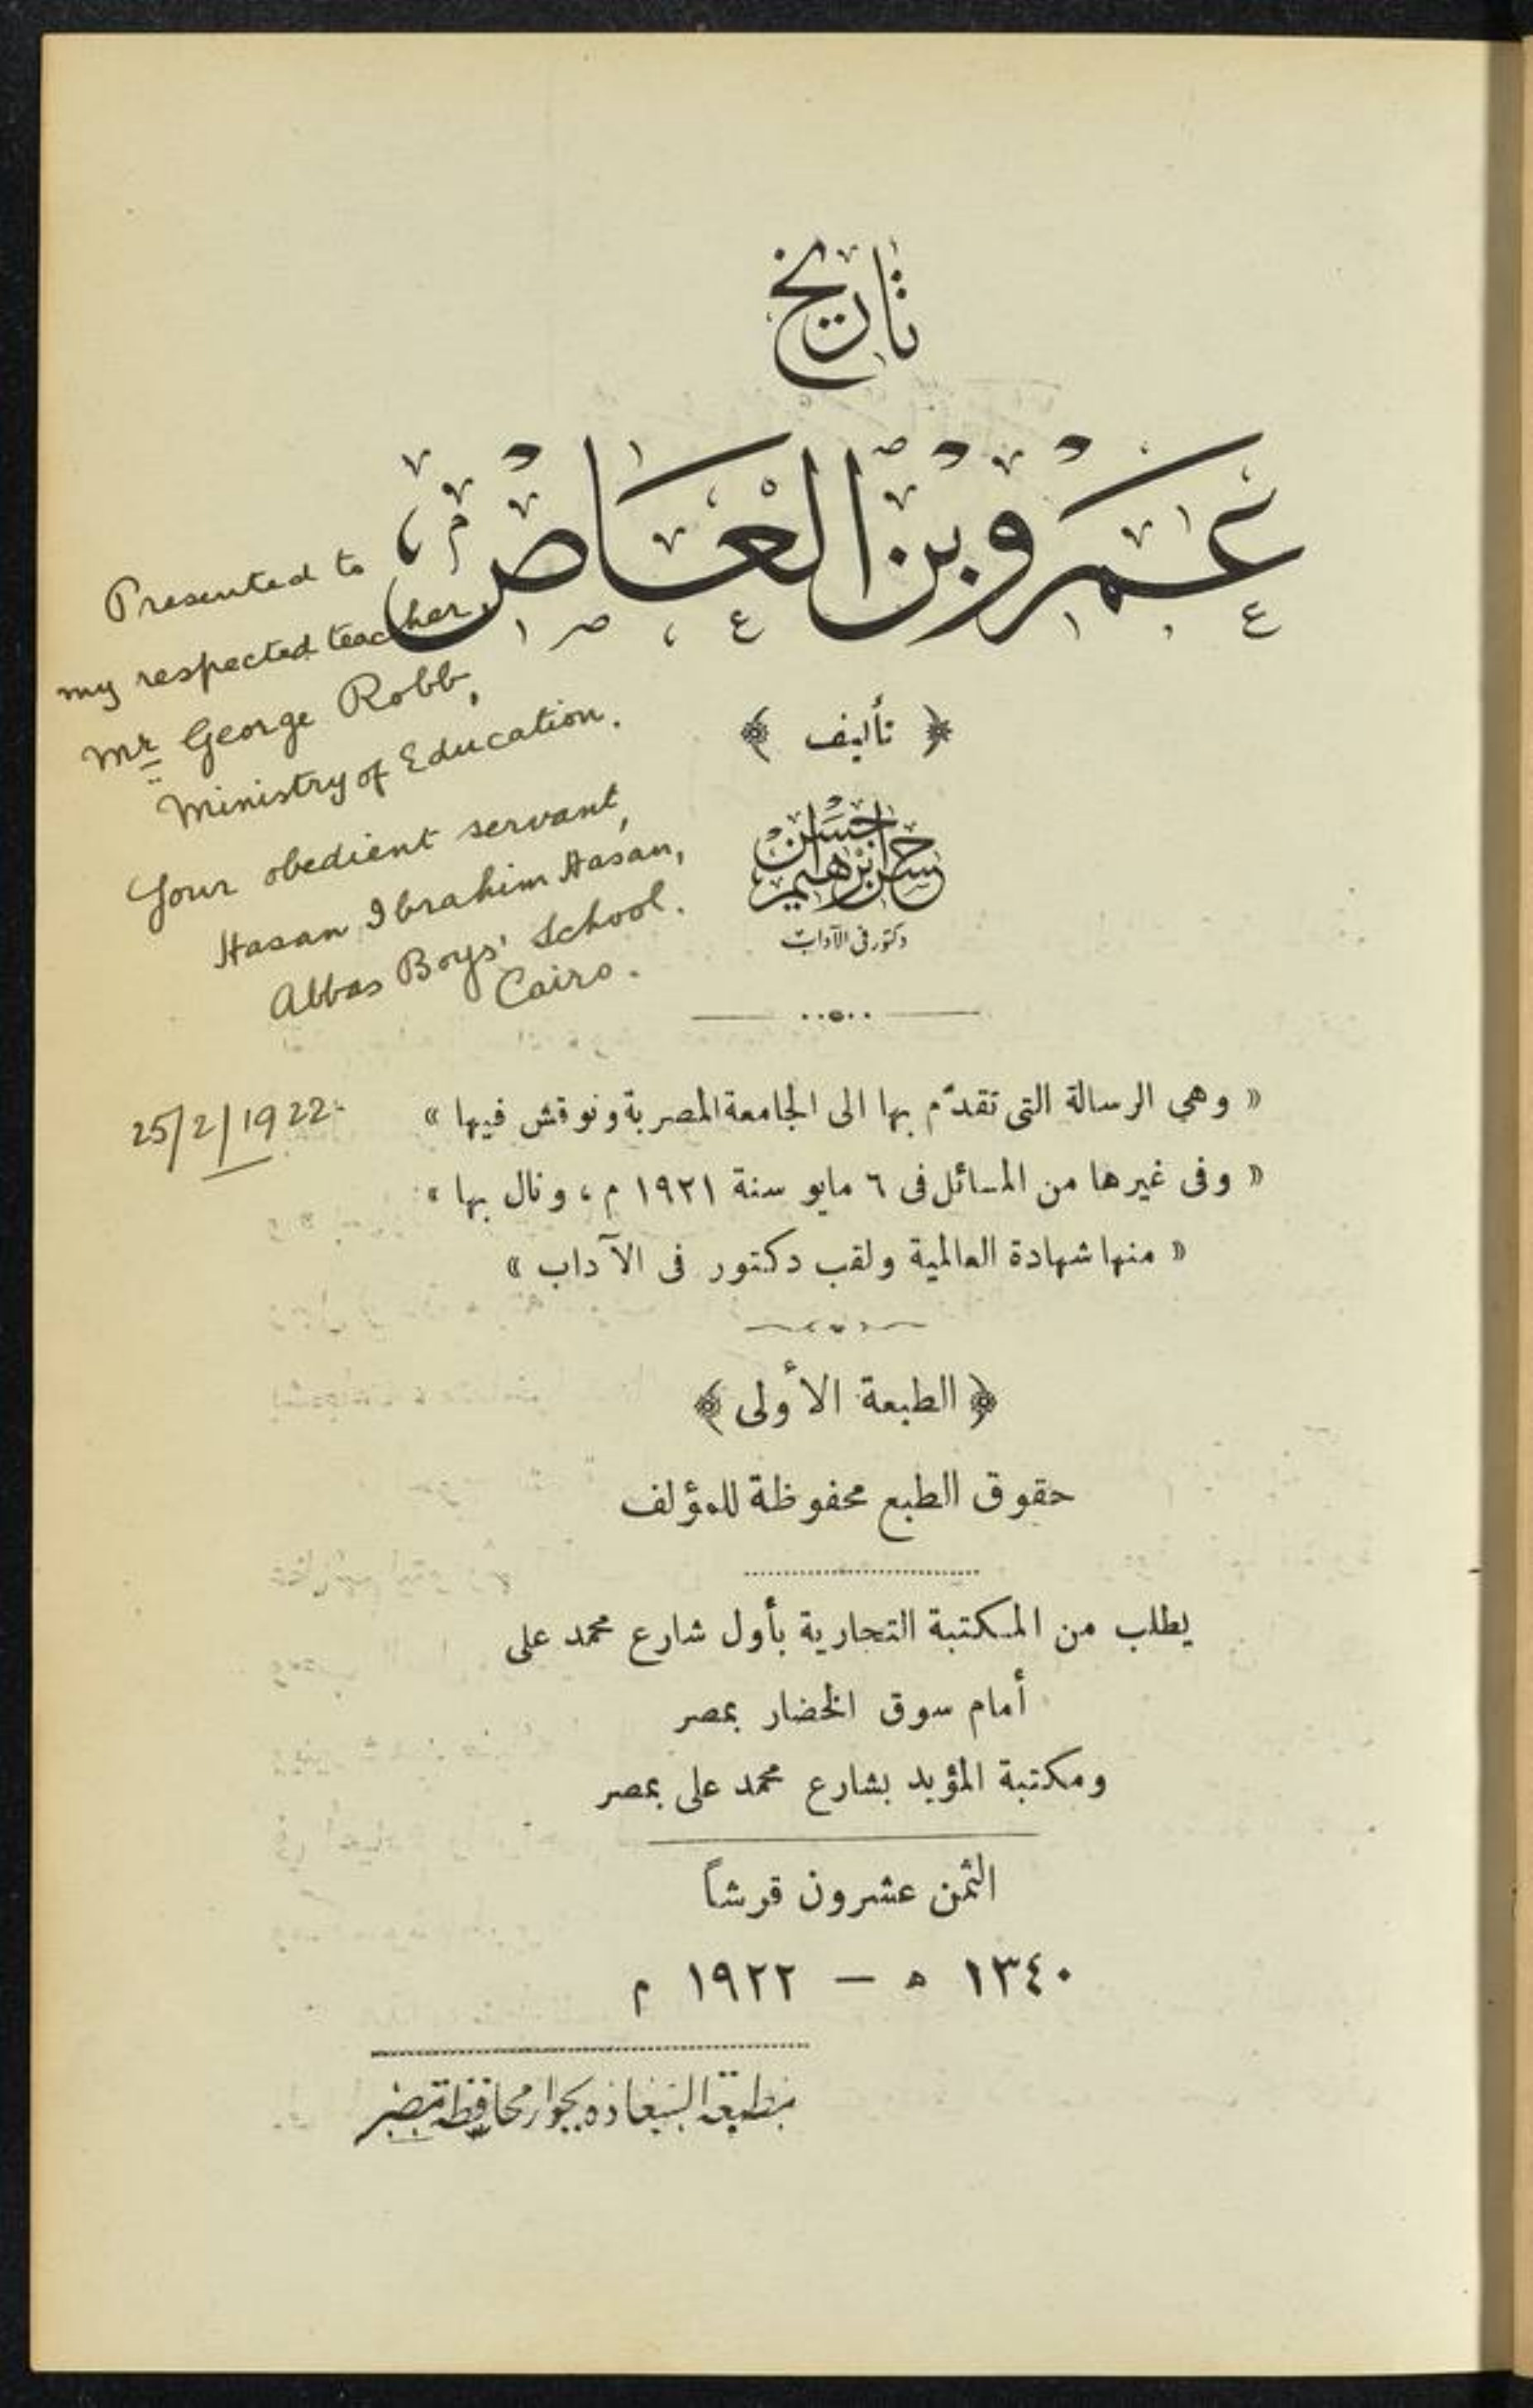 تاريخ
عمرو بن العاص
Presented to
my respected teacher,
Mr George Robb,
Ministry of Education.
Your obedient servant,
Hasan Ibrahim Hasan,
Abbas Boys' School.
Cairo.
25/2/1922.
﴿ تأليف ﴾
حسن ابرهيم حسن
دكتور في الآداب
« وهي الرسالة التى تقدّم بها الى الجامعة المصرية ونوقش فيها »
« وفى غيرها من المسائل فى ٦ مايو سنة ١٩٢١ م ، ونال بها »
« منها شهادة العالمية ولقب دكتور فى الآداب »
﴿ الطبعة الأولى ﴾
حقوق الطبع محفوظة للمؤلف
يطلب من المكتبة التجارية بأول شارع محمد على
أمام سوق الخضار بمصر
ومكتبة المؤيد بشارع محمد على بمصر
الثمن عشرون قرشاً
١٣٤٠ ه — ١٩٢٢ م
مطبعة السعادة بجوار محافظة مصر